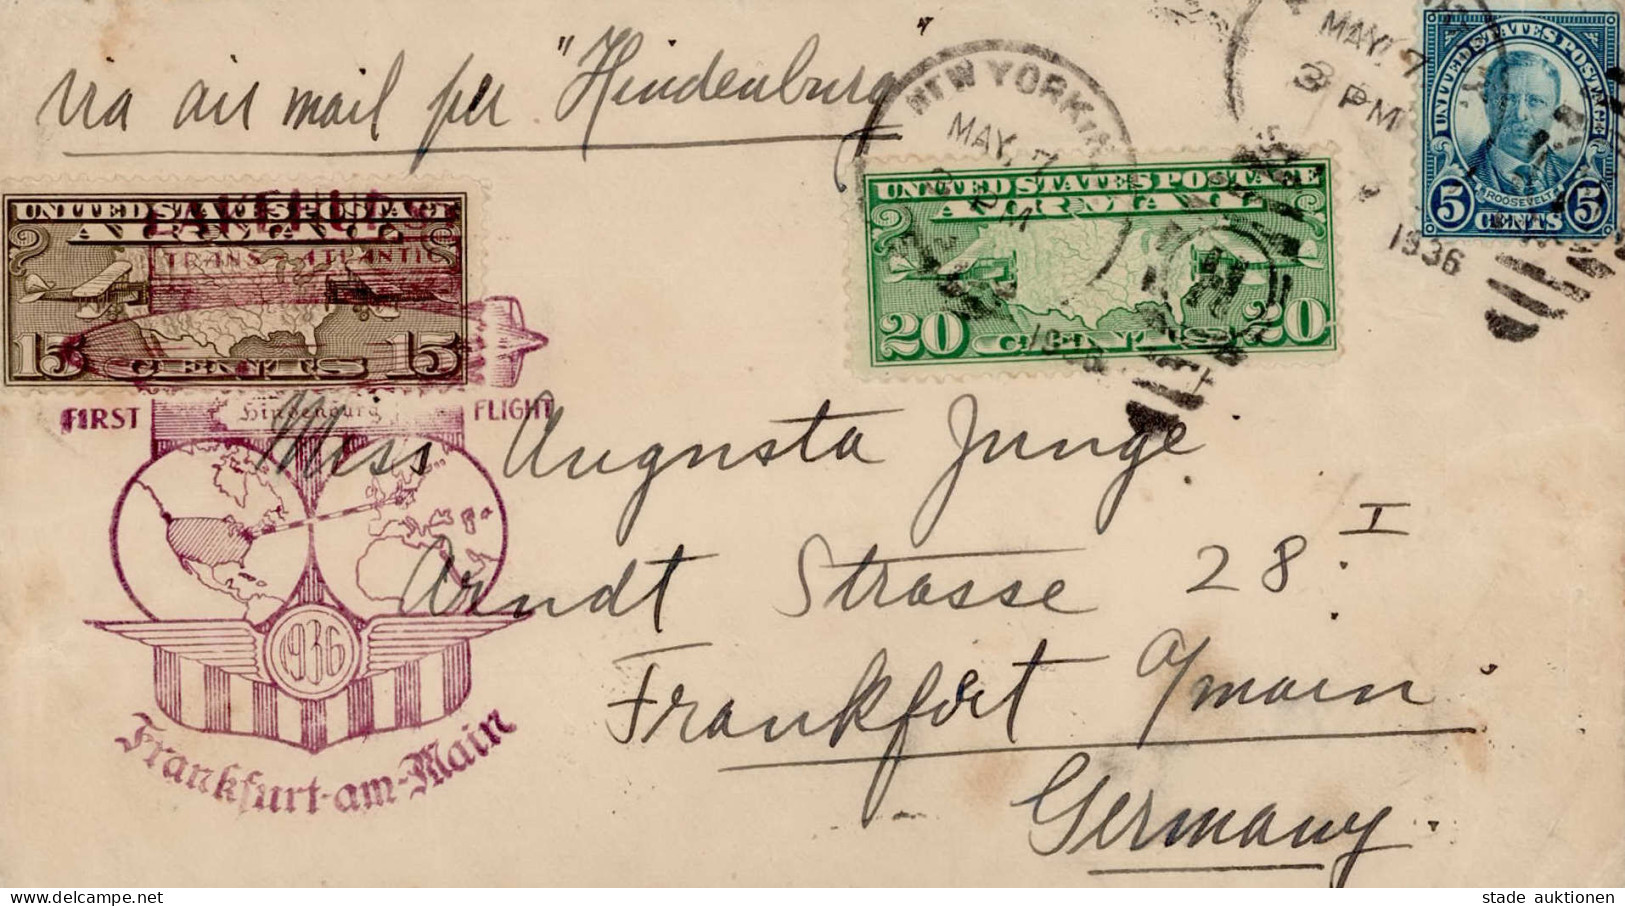 via air mail per "Hindenburg"
NEW YORK
MAY, 7
PM
1936
MAY, 7
3 PM
1936
UNITED STATES POSTAGE
ROOSEVELT
5 CENTS 5
UNITED STATES POSTAGE
AIR MAIL
15 CENTS 15
UNITED STATES POSTAGE
AIR MAIL
20 CENTS 20
LAKEHURST
TRANS-ATLANTIC
FIRST FLIGHT
Hindenburg
1936
Frankfurt-am-Main
Miss Augusta Junge
Arndt Strasse 28 I
Frankfort a/main
Germany.
stade auktionen